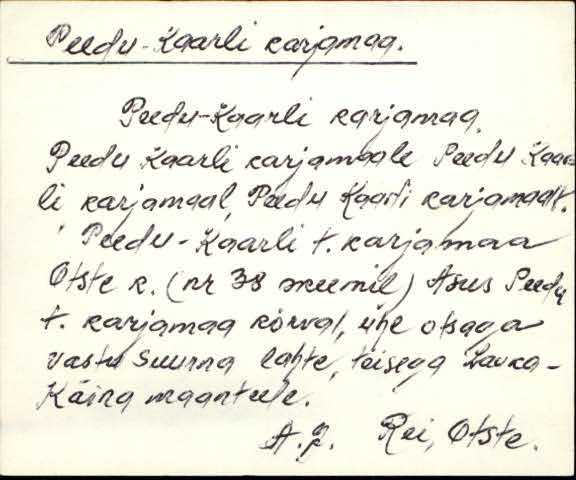 Peedu-Kaarli karjamaa.
Peedu-Kaarli karjamaa,
Peedu Kaarli karjamaale Peedu Kaar-
li karjamaal, Peedu Kaarli karjamaalt.
Peedu-Kaarli t. karjamaa
Otste k. (nr 38 skeemil) Asus Peedu
t. karjamaa kõrval, ühe otsaga
vastu Suurna lahte, teisega Lauka-
Käina maanteele.
Rei, Otste.